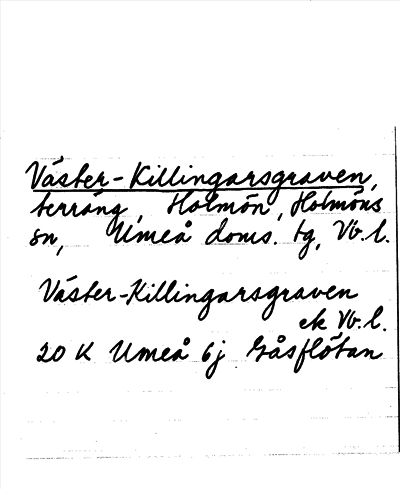 Väster-Killingarsgraven,
terräng, Holmön, Holmöns
sn, Umeå doms. tg, Vb. l.
Väster-Killingarsgraven
ek Vb. l.
20 K Umeå 6j Gåsflötan